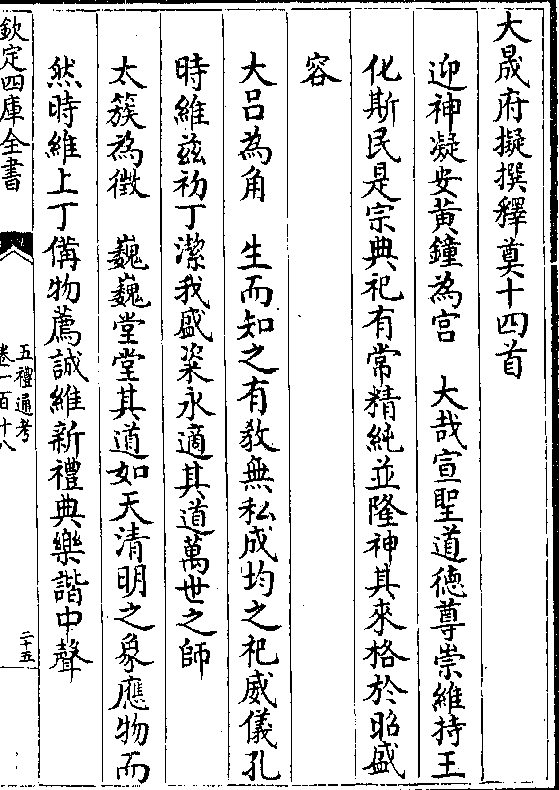 大晟府擬撰釋奠十四首
迎神凝安黄鐘為宫　大哉宣聖道德尊崇維持王
化斯民是宗典祀有常精純並隆神其來格於昭盛
容
大吕為角　生而知之有教無私成均之祀威儀孔
時維兹初丁潔我盛粢永適其道萬世之師
太簇為徴　巍巍堂堂其道如天清明之象應物而
然時維上丁備物薦誠維新禮典樂諧中聲
欽定四庫全書
五禮通考
卷一百十八
二十五